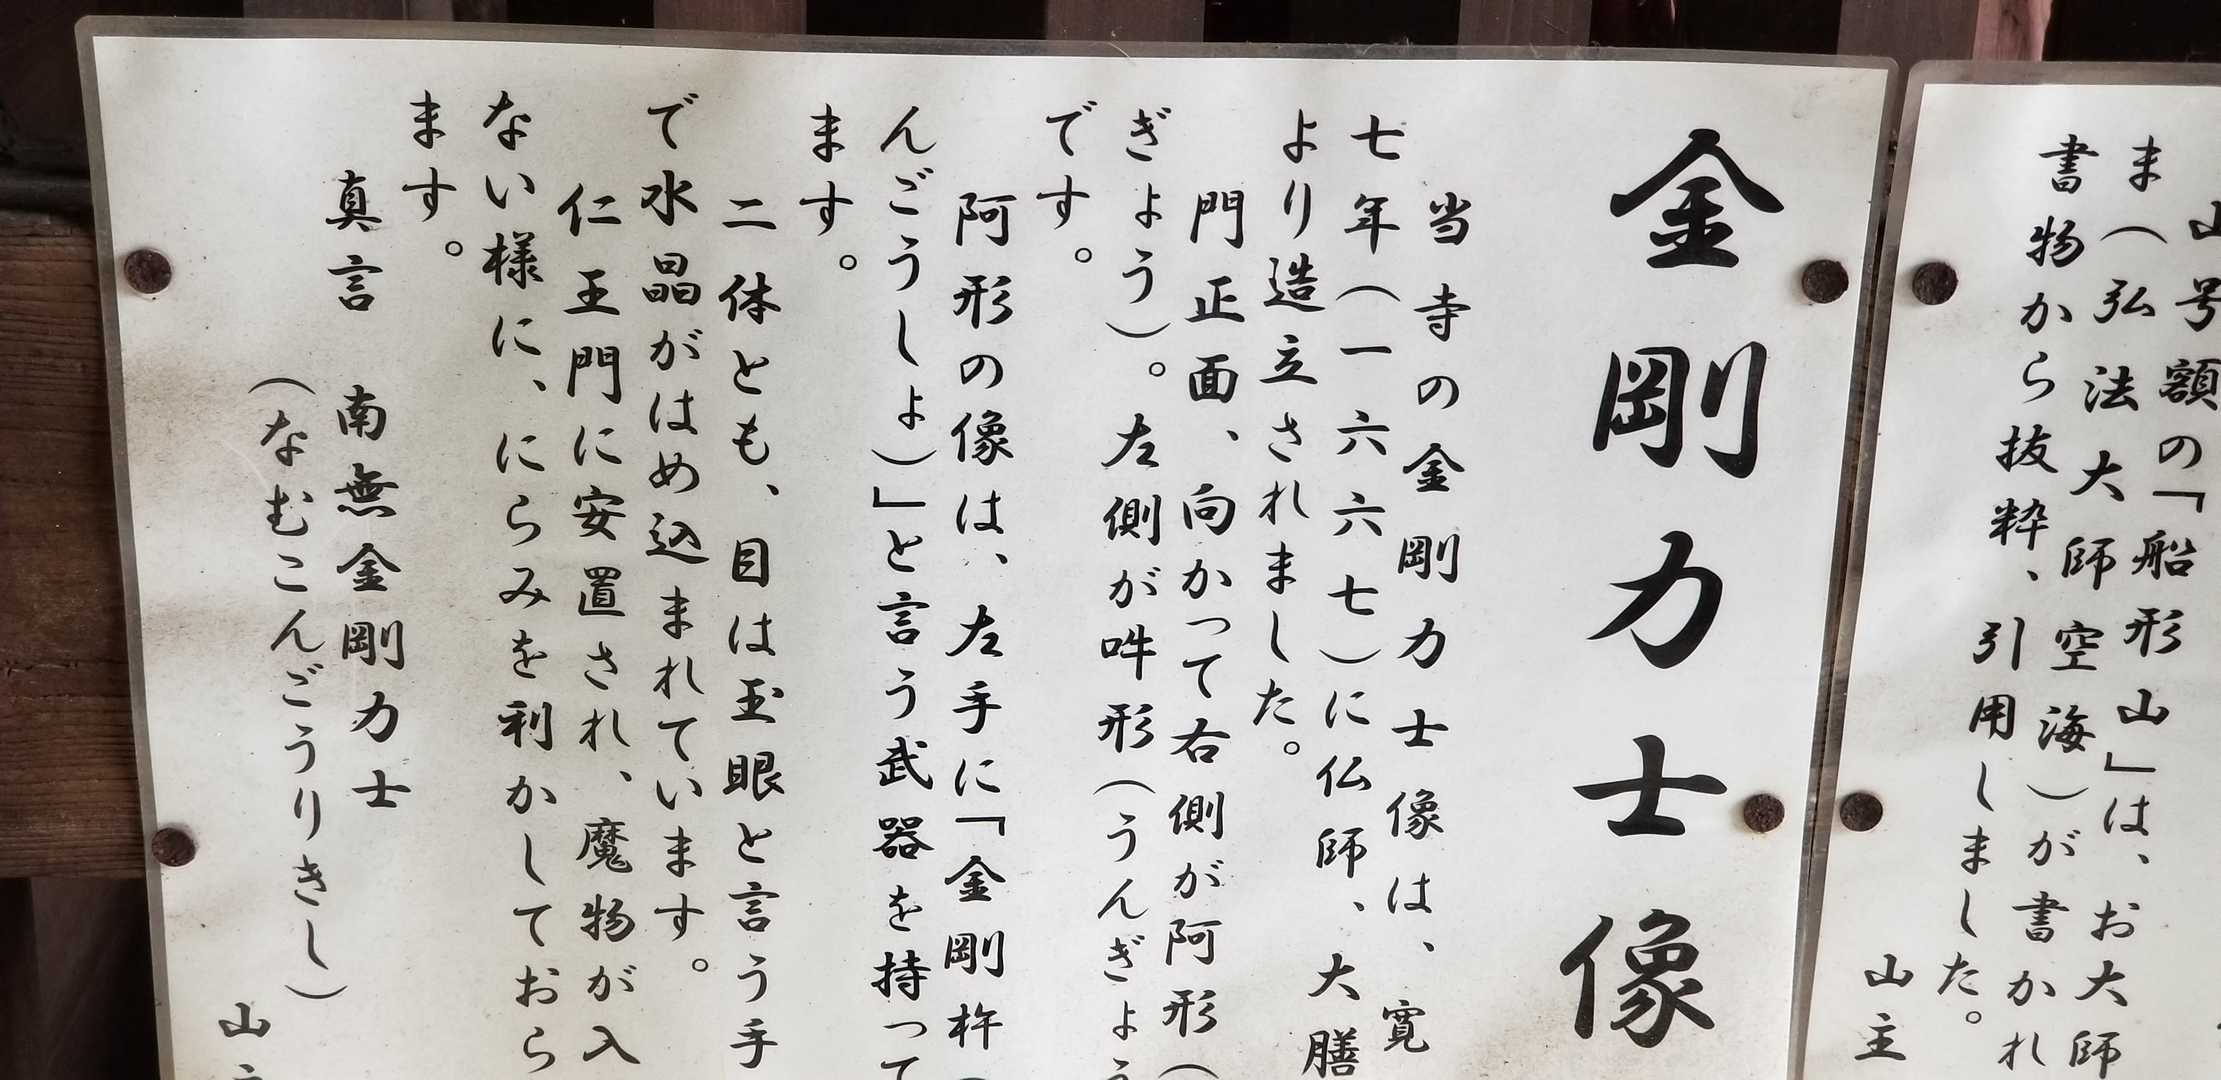 山号額の「船形山」は、お大師
ま(弘法大師空海)が書かれ
書物から抜粋、引用しました。
山主
金剛力士像
当寺の金剛力士像は、寛
七年(一六六七)に仏師、大膳
より造立されました。
門正面、向かって右側が阿形(
ぎょう)。左側が吽形(うんぎょう
です。
阿形の像は、左手に「金剛杵(
んごうしょ)」と言う武器を持って
ます。
二体とも、目は玉眼と言う手
で水晶がはめ込まれています。
仁王門に安置され、魔物が入
ない様に、にらみを利かしておら
ます。
真言 南無金剛力士
(なむこんごうりきし)
山主